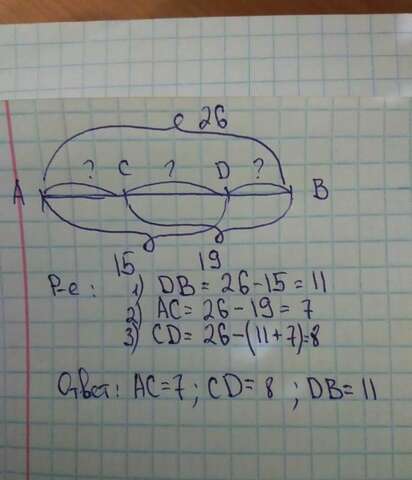 26
? C ? D ?
A B
15 19
Р-е: 1) DB = 26-15 = 11
2) AC = 26-19 = 7
3) CD = 26-(11+7)=8
Ответ: AC=7; CD=8; DB=11